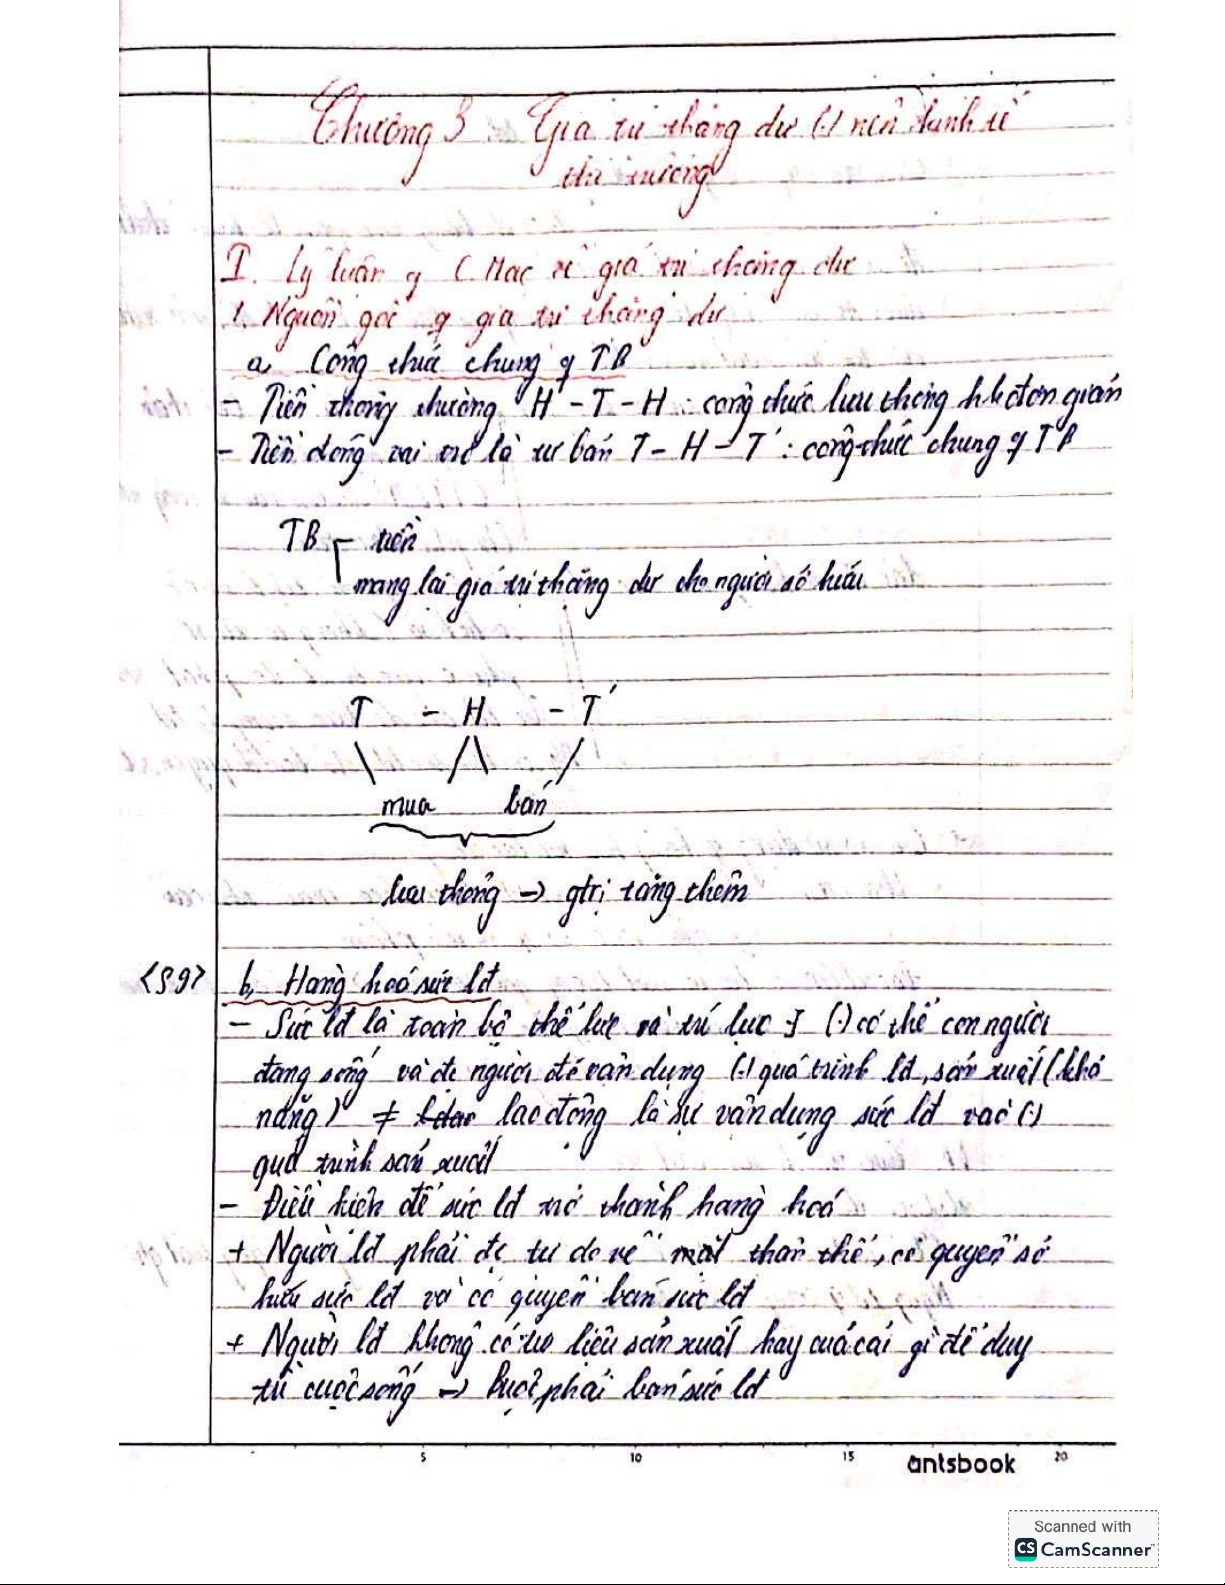 Chương 3 Giá trị thặng dư (.) nền kinh tế
thị trường
I. Lý luận q C Mac về giá trị thặng dư
1. Nguồn gốc q giá trị thặng dư
a, Công thức chung q TB
- Tiền thông thường H - T - H : công thức lưu thông hh đơn giản
- Tiền đóng vai trò là tư bản T - H - T' : công thức chung q TB
TB tiền
mang lại giá trị thặng dư cho người sở hữu
T - H - T'
mua bán
lưu thông → gtrị tăng thêm
<S9> b, Hàng hoá sức lđ
- Sức lđ là toàn bộ thể lực và trí lực (.) cơ thể con người
đang sống và đc người đó vận dụng (.) quá trình lđ, sản xuất (khả
năng) ≠ lao động là sự vận dụng sức lđ vào (.)
quá trình sản xuất
- Điều kiện để sức lđ trở thành hàng hoá
+ Người lđ phải đc tự do về mặt thân thể, có quyền sở
hữu sức lđ và có quyền bán sức lđ
+ Người lđ không có tư liệu sản xuất hay của cải gì để duy
trì cuộc sống → buộc phải bán sức lđ
5 10 15 antsbook 20
Scanned with
CS CamScanner